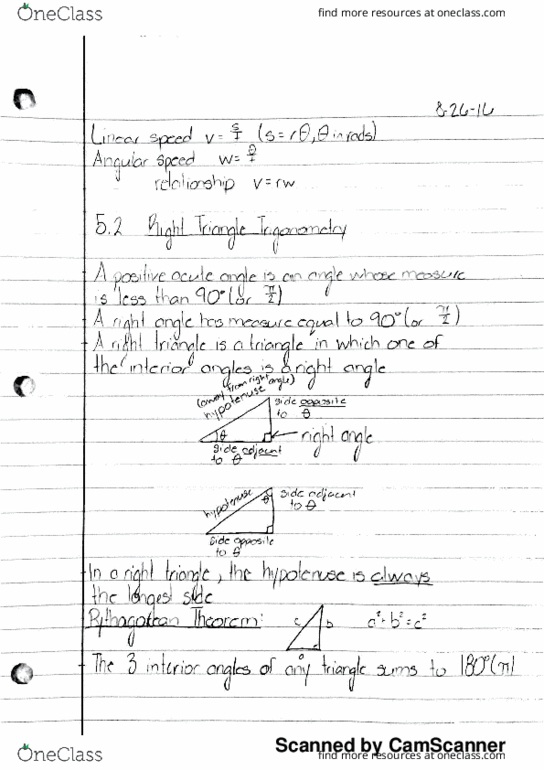 OneClass
find more resources at oneclass.com
8-26-16
Linear speed v = s/t (s=rθ, θ in rads)
Angular speed w = θ/t
relationship v=rw
5.2 Right Triangle Trigonometry
A positive acute angle is an angle whose measure
is less than 90° (or π/2)
A right angle has measure equal to 90° (or π/2)
A right triangle is a triangle in which one of
the interior angles is a right angle
(away from right angle)
hypotenuse
side opposite
to θ
θ
right angle
side adjacent
to θ
hypotenuse
θ
side adjacent
to θ
side opposite
to θ
In a right triangle, the hypotenuse is always
the longest side
Pythagorean Theorem: c b a²+b²=c²
a
The 3 interior angles of any triangle sums to 180° (π)
Scanned by CamScanner
OneClass
find more resources at oneclass.com